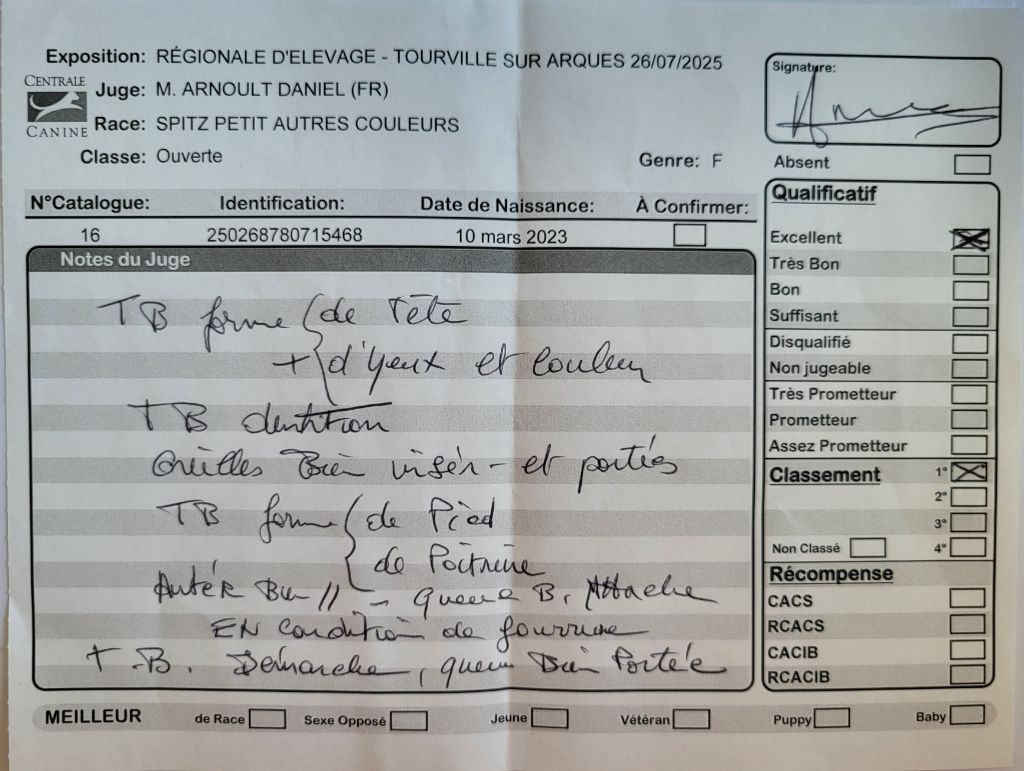 Exposition: RÉGIONALE D'ELEVAGE - TOURVILLE SUR ARQUES 26/07/2025
CENTRALE CANINE
Juge: M. ARNOULT DANIEL (FR)
Race: SPITZ PETIT AUTRES COULEURS
Classe: Ouverte
Genre: F
Signature:
Absent
N°Catalogue: Identification: Date de Naissance: À Confirmer:
16 250268780715468 10 mars 2023
Notes du Juge
TB forme de Tête
+ d'Yeux et couleur
TB dentition
Oreilles Bien - et portées
TB forme de Pied
de Poitrine
Antér Bien // - queue B. Attache
EN condition de fourrure
T.B. Démarche, queue Bien Portée
Qualificatif
Excellent
Très Bon
Bon
Suffisant
Disqualifié
Non jugeable
Très Prometteur
Prometteur
Assez Prometteur
Classement 1°
2°
3°
Non Classé 4°
Récompense
CACS
RCACS
CACIB
RCACIB
MEILLEUR de Race Sexe Opposé Jeune Vétéran Puppy Baby